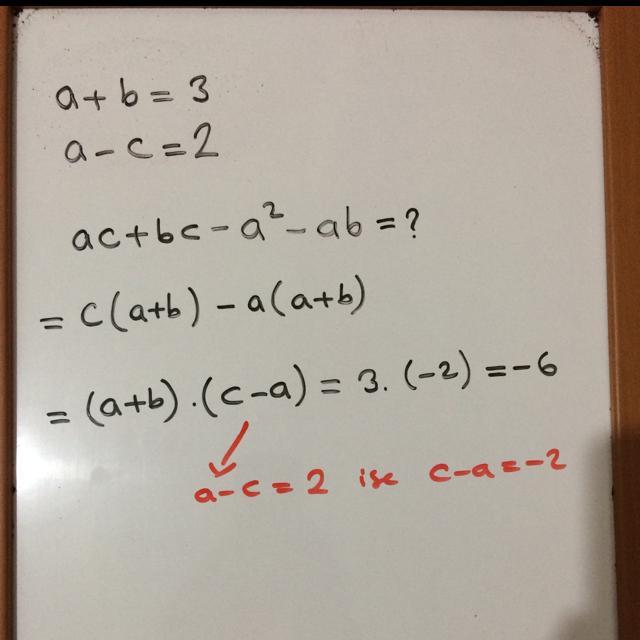 a+b=3
a-c=2
ac+bc-a²-ab=?
=c(a+b)-a(a+b)
=(a+b).(c-a)=3.(-2)=-6
a-c=2 ise c-a=-2